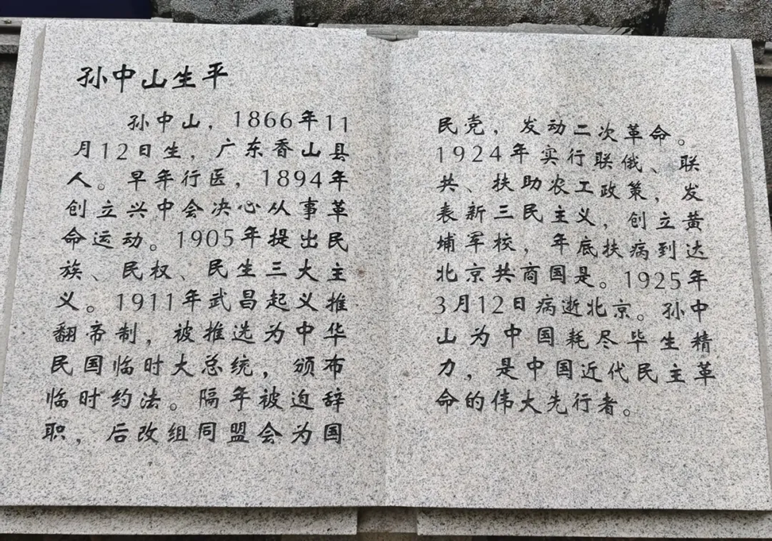 孙中山生平
孙中山，1866年11
月12日生，广东香山县
人。早年行医，1894年
创立兴中会决心从事革
命运动。1905年提出民
族、民权、民生三大主
义。1911年武昌起义推
翻帝制，被推选为中华
民国临时大总统，颁布
临时约法。隔年被迫辞
职，后改组同盟会为国
民党，发动二次革命。
1924年实行联俄、联
共、扶助农工政策，发
表新三民主义，创立黄
埔军校，年底扶病到达
北京共商国是。1925年
3月12日病逝北京。孙中
山为中国耗尽毕生精
力，是中国近代民主革
命的伟大先行者。